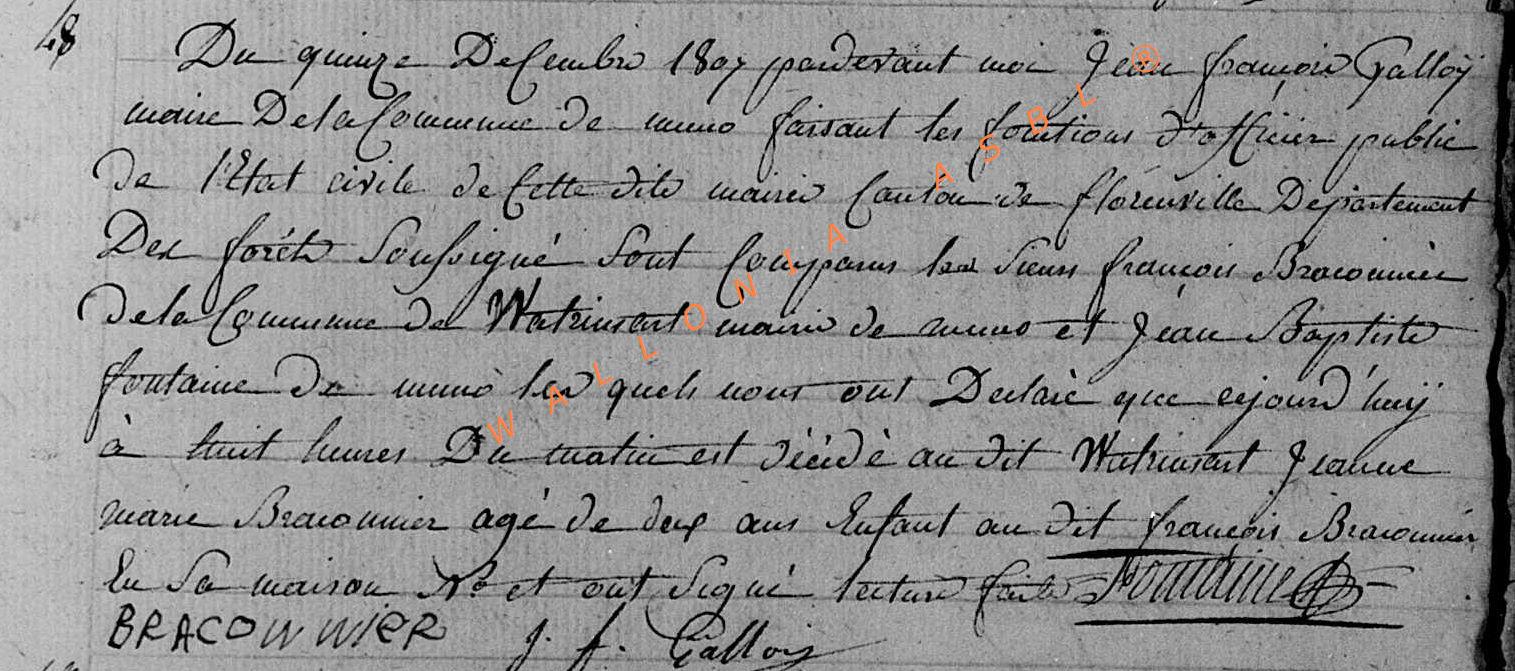 48
Du quinze Decembre 1807 pardevant moi Jean françois Galloÿ
maire De la Commune de muno faisant les fonctions d'officier public
de l'Etat civile de Cette dite mairie Canton de florenville Departement
Des forêts Soussigné Sont Comparus les Sieurs françois Braconnier
de la Commune de Watrinsart mairie de muno et Jean Baptiste
fontaine De muno les quels nous ont Declaré que cejourd'huÿ
à huit heures Du matin est décédé au dit Watrinsart Jeanne
marie Braconnier agé de deux ans Enfant au dit françois Braconnier
En Sa maison N° et ont Signé lecture faite Fontaine
BRACONNIER J. f. Galloiy
WALLONIA ASBL ®